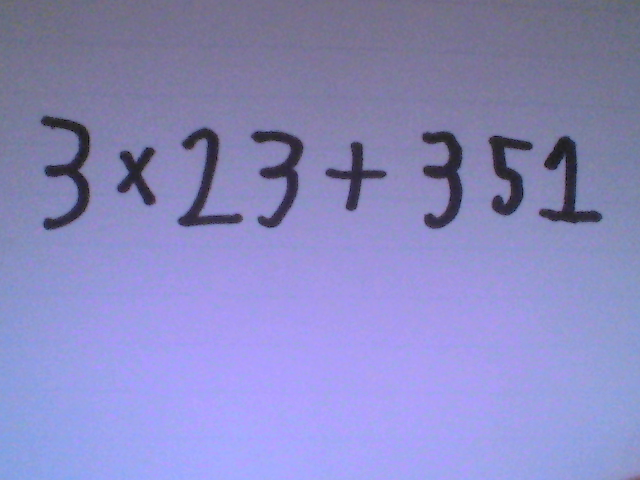 3×23+351